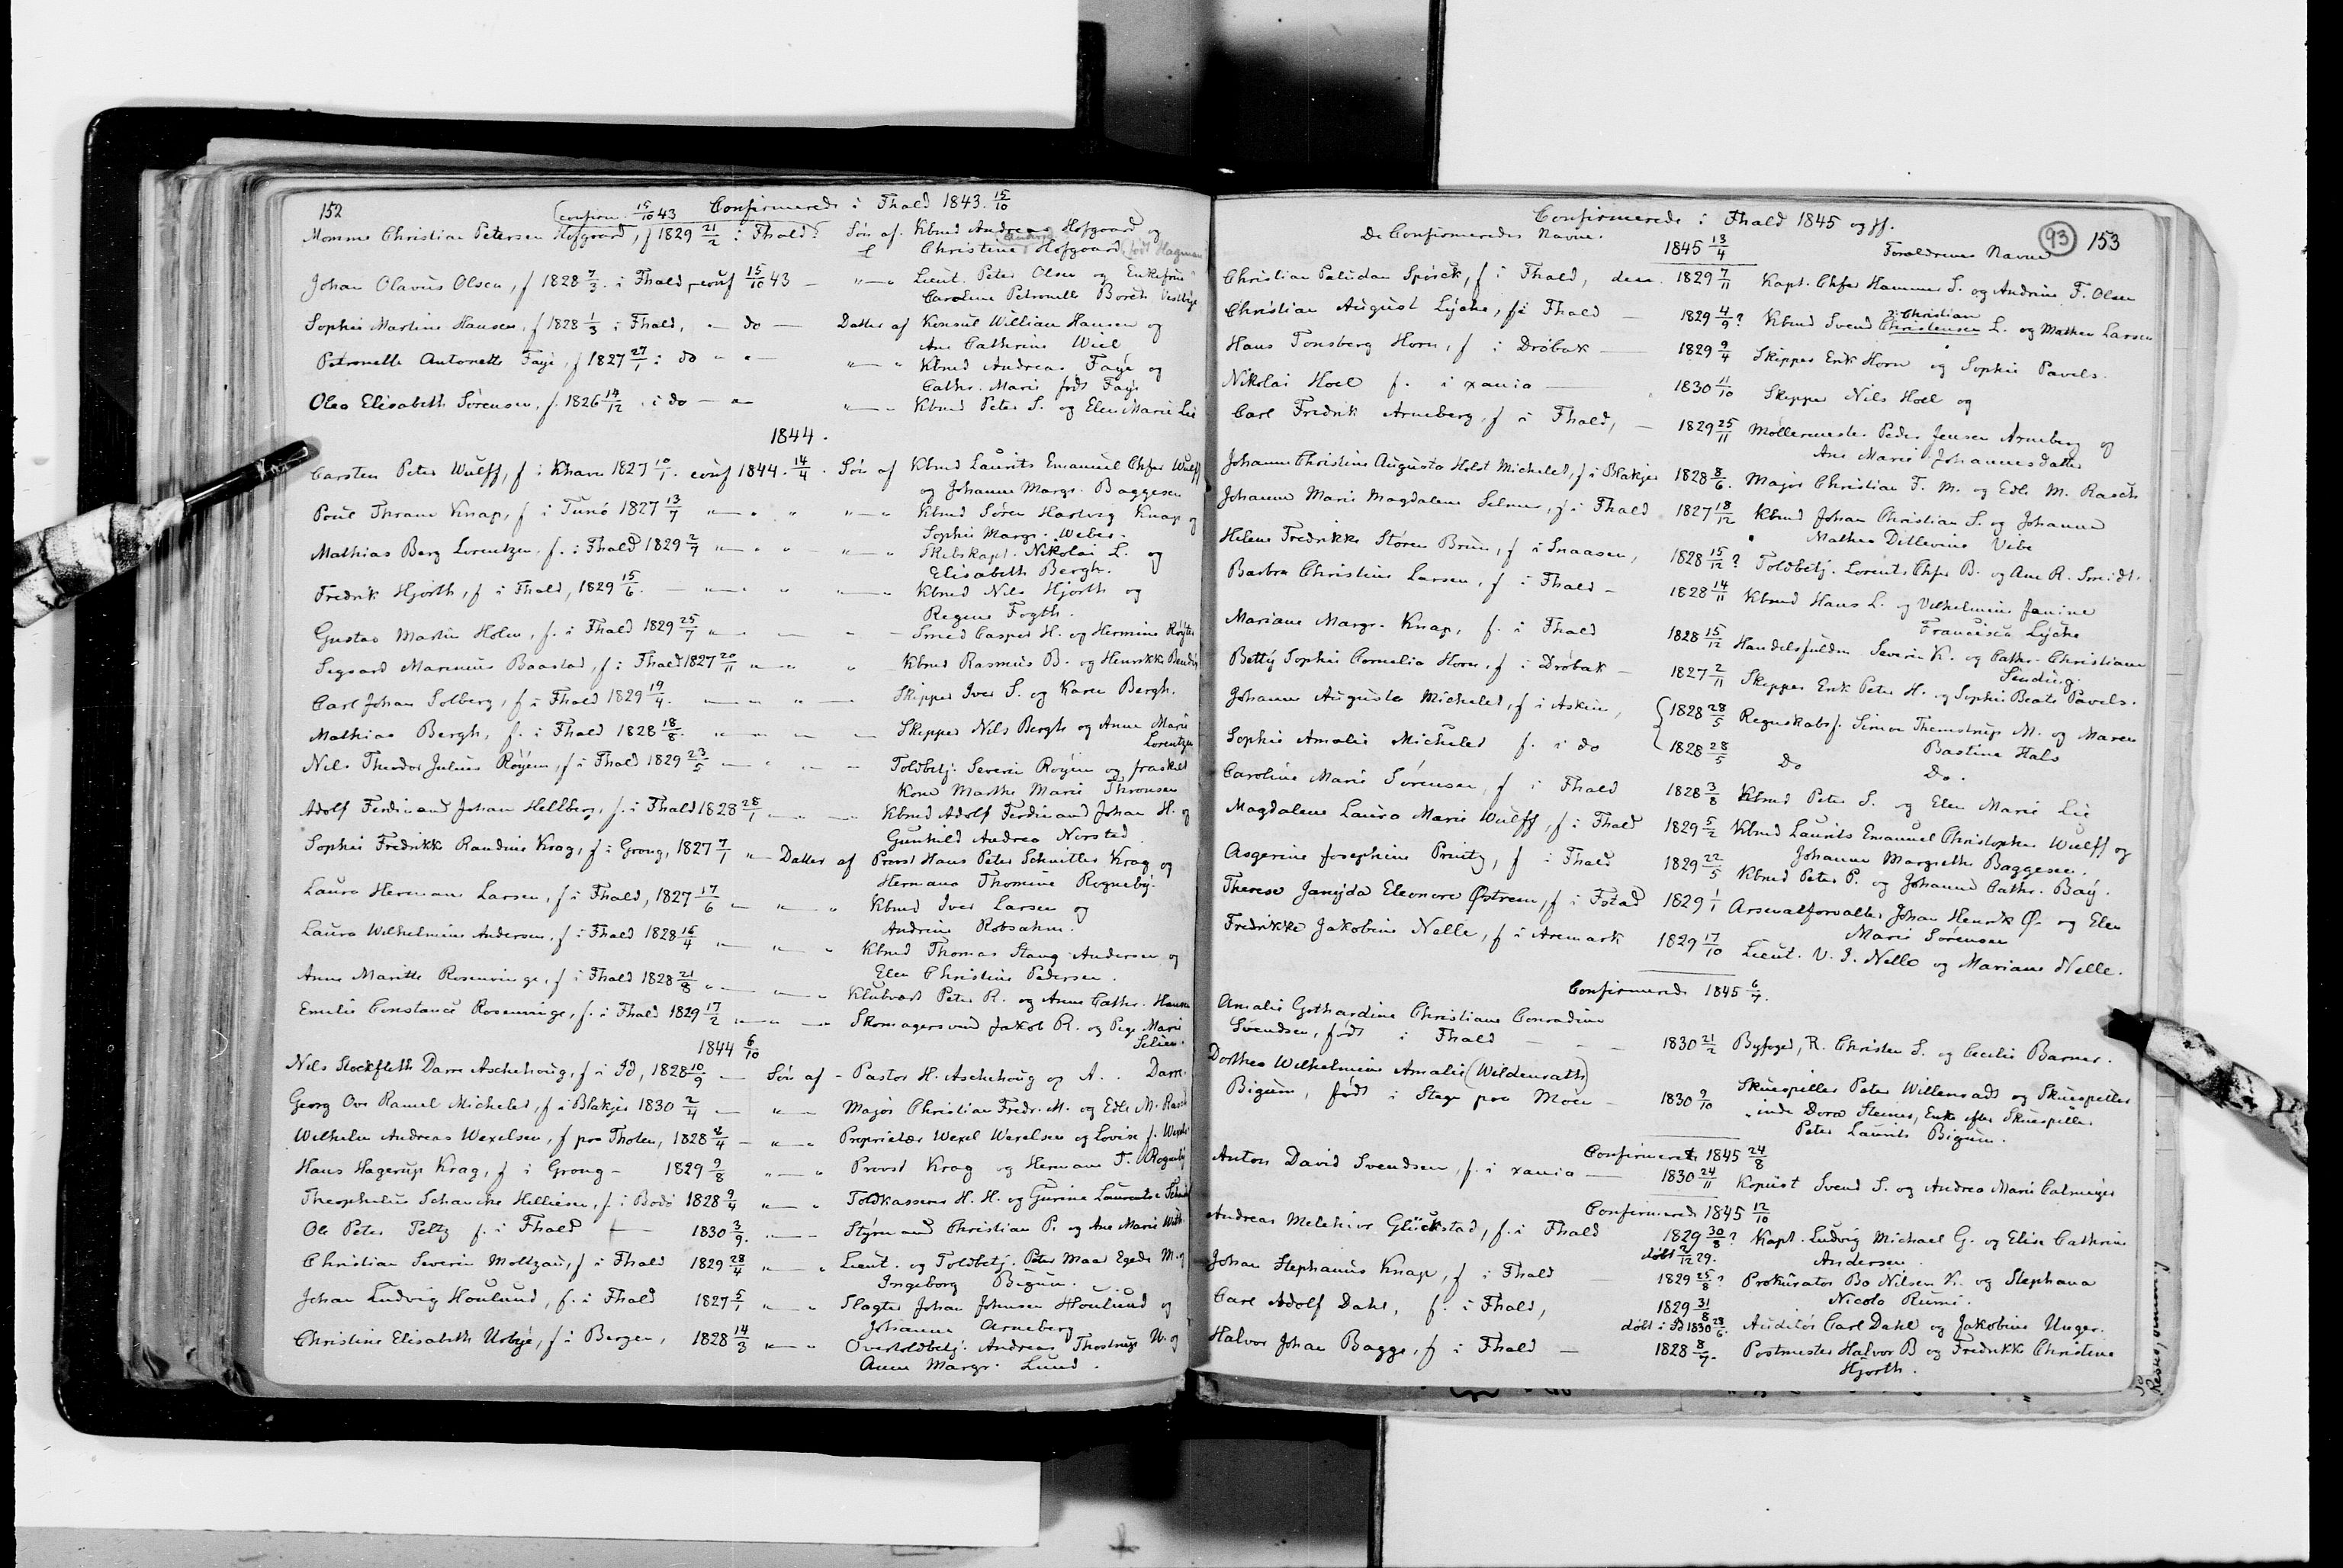 152
(confirm. 15/10 43 Confirmerede i Fhald 1843. 15/10
Momme Christian Petersen Hofgaard, f 1829 21/2 i Fhald. Søn af. Kbmd Andreas Hofgaard og
Christine Hofgaard (født Hagmann
Johan Olavus Olsen, f 1828 7/3. i Fhald, conf 15/10 43 — "—" Lieut. Peter Olsen og Enkefru
Caroline Petronelle Borch
Sophie Martine Hansen, f 1828 1/3 i Fhald, — do — Datter af Konsul William Hansen og
Ane Cathrine Wiel
Petronelle Antonette Faye, f 1827 27/1 i do " " — "—" Kbmd Andreas Faye og
Cathr. Marie født Faye
Olea Elisabeth Sørensen, f. 1826 14/12 . i do — " — "—" Kbmd Peter S. og Elen Marie Lie
1844.
Carsten Peter Wulff, f i Khavn 1827 10/1. conf 1844. 14/4. Søn af Kbmd Laurits Emanuel Chfer Wulff
og Johanne Margr. Baggesen
Poul Thrane Knap, f i Tunø 1827 13/7 "—" " "—" Kbmd Søren Hartvig Knap og
Sophie Margr. Weber.
Mathias Berg Lorentzen. f. i Fhald 1829 2/7 "—" " "—" Skibskapt. Nikolai L. og
Elisabeth Bergh.
Fredrik Hjorth, f i Fhald, 1829 15/6. — "—" " "—" Kbmd Nils Hjorth og
Regine Fogth.
Gustav Martin Holm, f. i Fhald 1829 25/7 "—" — " — Smed Casper H. og Hermine
Segvard Marenius Baastad, f i Fhald 1827 20/11 "—" " — Kbmd Rasmus B. og Henrikke
Carl Johan Solberg, f i Fhald 1829 19/4. "—" " — Skipper Iver S. og Karen Bergh.
Mathias Bergh, f. i Fhald 1828 18/8. "—" — — Skipper Nils Bergh og Anne Marie
Lorentzen
Nils Theodor Julius Røyem, f i Fhald 1829 23/5 — " — — Toldbetj. Severin Røyem og fraskilt
Kone Marthe Marie Thronsen
Adolf Ferdinand Johan Hellberg, f. i Fhald 1828 28/1 "—" — Kbmd Adolf Ferdinand Johan H. og
Gunhild Andrea Norstad
Sophie Fredrikke Randine Krag, f i Grong, 1827 7/1 "— Datter af Provst Hans Peter Schnitler Krag og
Hermana Thomine Rogneby.
Laura Hermane Larsen, f i Fhald, 1827 17/6 — " — " Kbmd Iver Larsen og
Andrine Robsahm.
Laura Wilhelmine Andersen, f i Fhald 1828 16/4 "—" — " Kbmd Thomas Stang Andersen og
Elen Christine Pedersen.
Anne Maritte Rosenvinge, f i Fhald 1828 21/8 "— "—" Klubvært Peter R. og Anne Cathr. Hansen
Emilie Constance Rosenvinge, f. i Fhald 1829 17/2 "—" — Skomagersvend Jakob R. og Pege Marie
1844 6/10
Nils Stockfleth Darre Aschehoug, f i Id, 1828 10/9 — Søn af - Pastor H. Aschehoug og A. . Darre.
Georg Ove Ramel Michelet, f i Blakjer 1830 2/4 — "—" Major Christian Fredr. M. og Edle M. Rasch
Wilhelm Andreas Wexelsen, f paa Thoten, 1828 2/4 — "—" Proprietær Wexel Wexelsen og Lovise f. Wexels
Hans Hagerup Krag, f i Grong - 1829 9/8 "—" Provst Krag og Hermane T. Rogneby
Theophilus Schancke Helliesen, f i Bodø 1828 9/4 "—" Toldkasserer H. H. og Gurine Laurentze
Ole Peter Peltz f. i Fhald — 1830 3/9. "—" Styrmand Christian P. og Ane Marie
Christian Severin Moltzau, f i Fhald 1829 28/4 "—" Lieut. og Toldbetj. Peter Maar Egede M. og
Ingeborg Bigum.
Johan Ludvig Houlund, f. i Fhald 1827 5/1 "—" Slagter Johan Johnsen Houlund og
Johanne Arneberg
Christine Elisabeth Urbye, f i Bergen, 1828 14/3 "—" Overtoldbetj. Andreas Thostrup U. og
Anne Margr. Lund.
Confirmerede i Fhald 1845 og ff.
93 153
De Confirmeredes Navne. 1845 13/4 Forældrenes Navne
Christian Paludan Spørck, f i Fhald, den. 1829 7/11 Kapt. Chfer Hammer S. og Andrine F. Olsen
Christian August Lyche, f i Fhald — 1829 4/9? Kbmd Svend Christensen L. og Mathea Larsen
ɔ: Christian
Hans Tonsberg Horn, f i Drøbak — 1829 9/4 Skipper Erik Horn og Sophie Pavels.
Nikolai Hoel f. i xania — 1830 11/10 Skipper Nils Hoel og
Carl Fredrik Arneberg, f i Fhald, — 1829 25/11 Møllermester Peder Jensen Arneberg og
Ane Marie Johannesdatter
Johanne Christine Augusta Holst Michelet, f i Blakjer 1828 8/6. Major Christian F. M. og Edle M. Rasch
Johanne Marie Magdalene Selmer, f i Fhald 1827 18/12 Kbmd Johan Christian S. og Johanne
Mathea Ditlevine Vibe
Helene Fredrikke Støren Brun, f i Snaasen, 1828 15/12? Toldbetj. Lorents Chfer B. og Ane R. Smidt.
Barbra Christine Larsen, f i Fhald - 1828 14/11 Kbmd Hans L. og Vilhelmine Janine
Francisca Lyche
Mariane Margr. Knap, f. i Fhald 1828 15/12 Handelsfuldm Severin K. og Cathr. Christiane
Sending.
Betty Sophie Cornelia Horn, f i Drøbak — 1827 2/11 Skipper Erik Peter H. og Sophie Beate Pavels.
Johanne Augusta Michelet, f i Askim, {1828 28/5 Regnskabsf. Simon Themstrup M. og Maren
Bastine Hals
Sophie Amalie Michelet f. i do 1828 28/5 Do Do.
Caroline Marie Sørensen, f i Fhald 1828 3/8 Kbmd Peter S. og Elen Marie Lie
Magdalene Laura Marie Wulff, f i Fhald 1829 5/2 Kbmd Laurits Emanuel Christopher Wulff og
Johanne Margrethe Baggesen.
Asgerine Josephine Printz, f i Fhald 1829 22/5 Kbmd Peter P. og Johanne Cathr. Bay.
Therese Janyda Eleonore Østrem, f i Fstad 1829 1/1 Arsenalforvalter Johan Henrik Ø. og Elen
Marie Sørensen
Fredrikke Jakobine Nelle, f i Aremark 1829 17/10 Lieut. V. J. Nelle og Mariane Nelle.
Confirmerede 1845 6/7.
Amalie Gothardine Christiane Conradine
Svendsen, født i Fhald — — 1830 21/2 Byfoged, R. Christen S. og Cecilie Barner.
Dorthea Wilhelmine Amalie (Wildenrath)
Bigum, født i Stege paa Møen — 1830 9/10 Skuespiller Peter Willenradt og Skuespiller
"inde Dora Steines, Enke efter Skuespiller
Peter Laurits Bigum.
Confirmerede 1845 24/8
Anton David Svendsen, f. i xania — 1830 24/11 Kopiist Svend S. og Andrea Marie Calmeyer
Confirmerede 1845 12/10
Andreas Melchior Glückstad, f. i Fhald 1829 30/8? Kapt. Ludvig Michael G. og Elise Cathrine
døbt 2/12 29. Andersen.
Johan Stephanus Knap, f i Fhald 1829 25/8? Prokurator Bo Nilsen K. og Stephana
Nicolo Rumi.
Carl Adolf Dahl, f. i Fhald, 1829 31/8
døbt i Id 1830 28/6. Auditør Carl Dahl og Jakobine Unger.
Halvor Johan Bagge, f i Fhald — 1828 8/7. Postmester Halvor B og Fredrikke Christine
Hjorth.